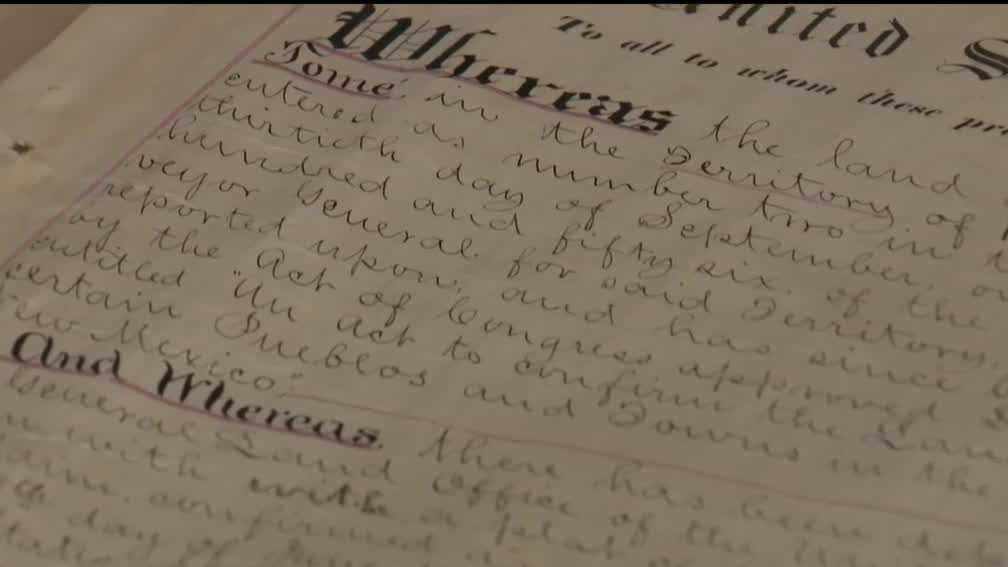 United S
To all to whom these pre
Whereas the land
Tomé in the Territory of
entered as number two in
thirtieth day of September, o
hundred and fifty six, of the
veyor General for said Territory,
reported upon, and has since
by the Act of Congress approved
entitled "An Act to confirm the Lan
certain Pueblos and Towns in the
ew Mexico."
And Whereas, there has been
General Land Office of the
with a plat
confirmed
day of